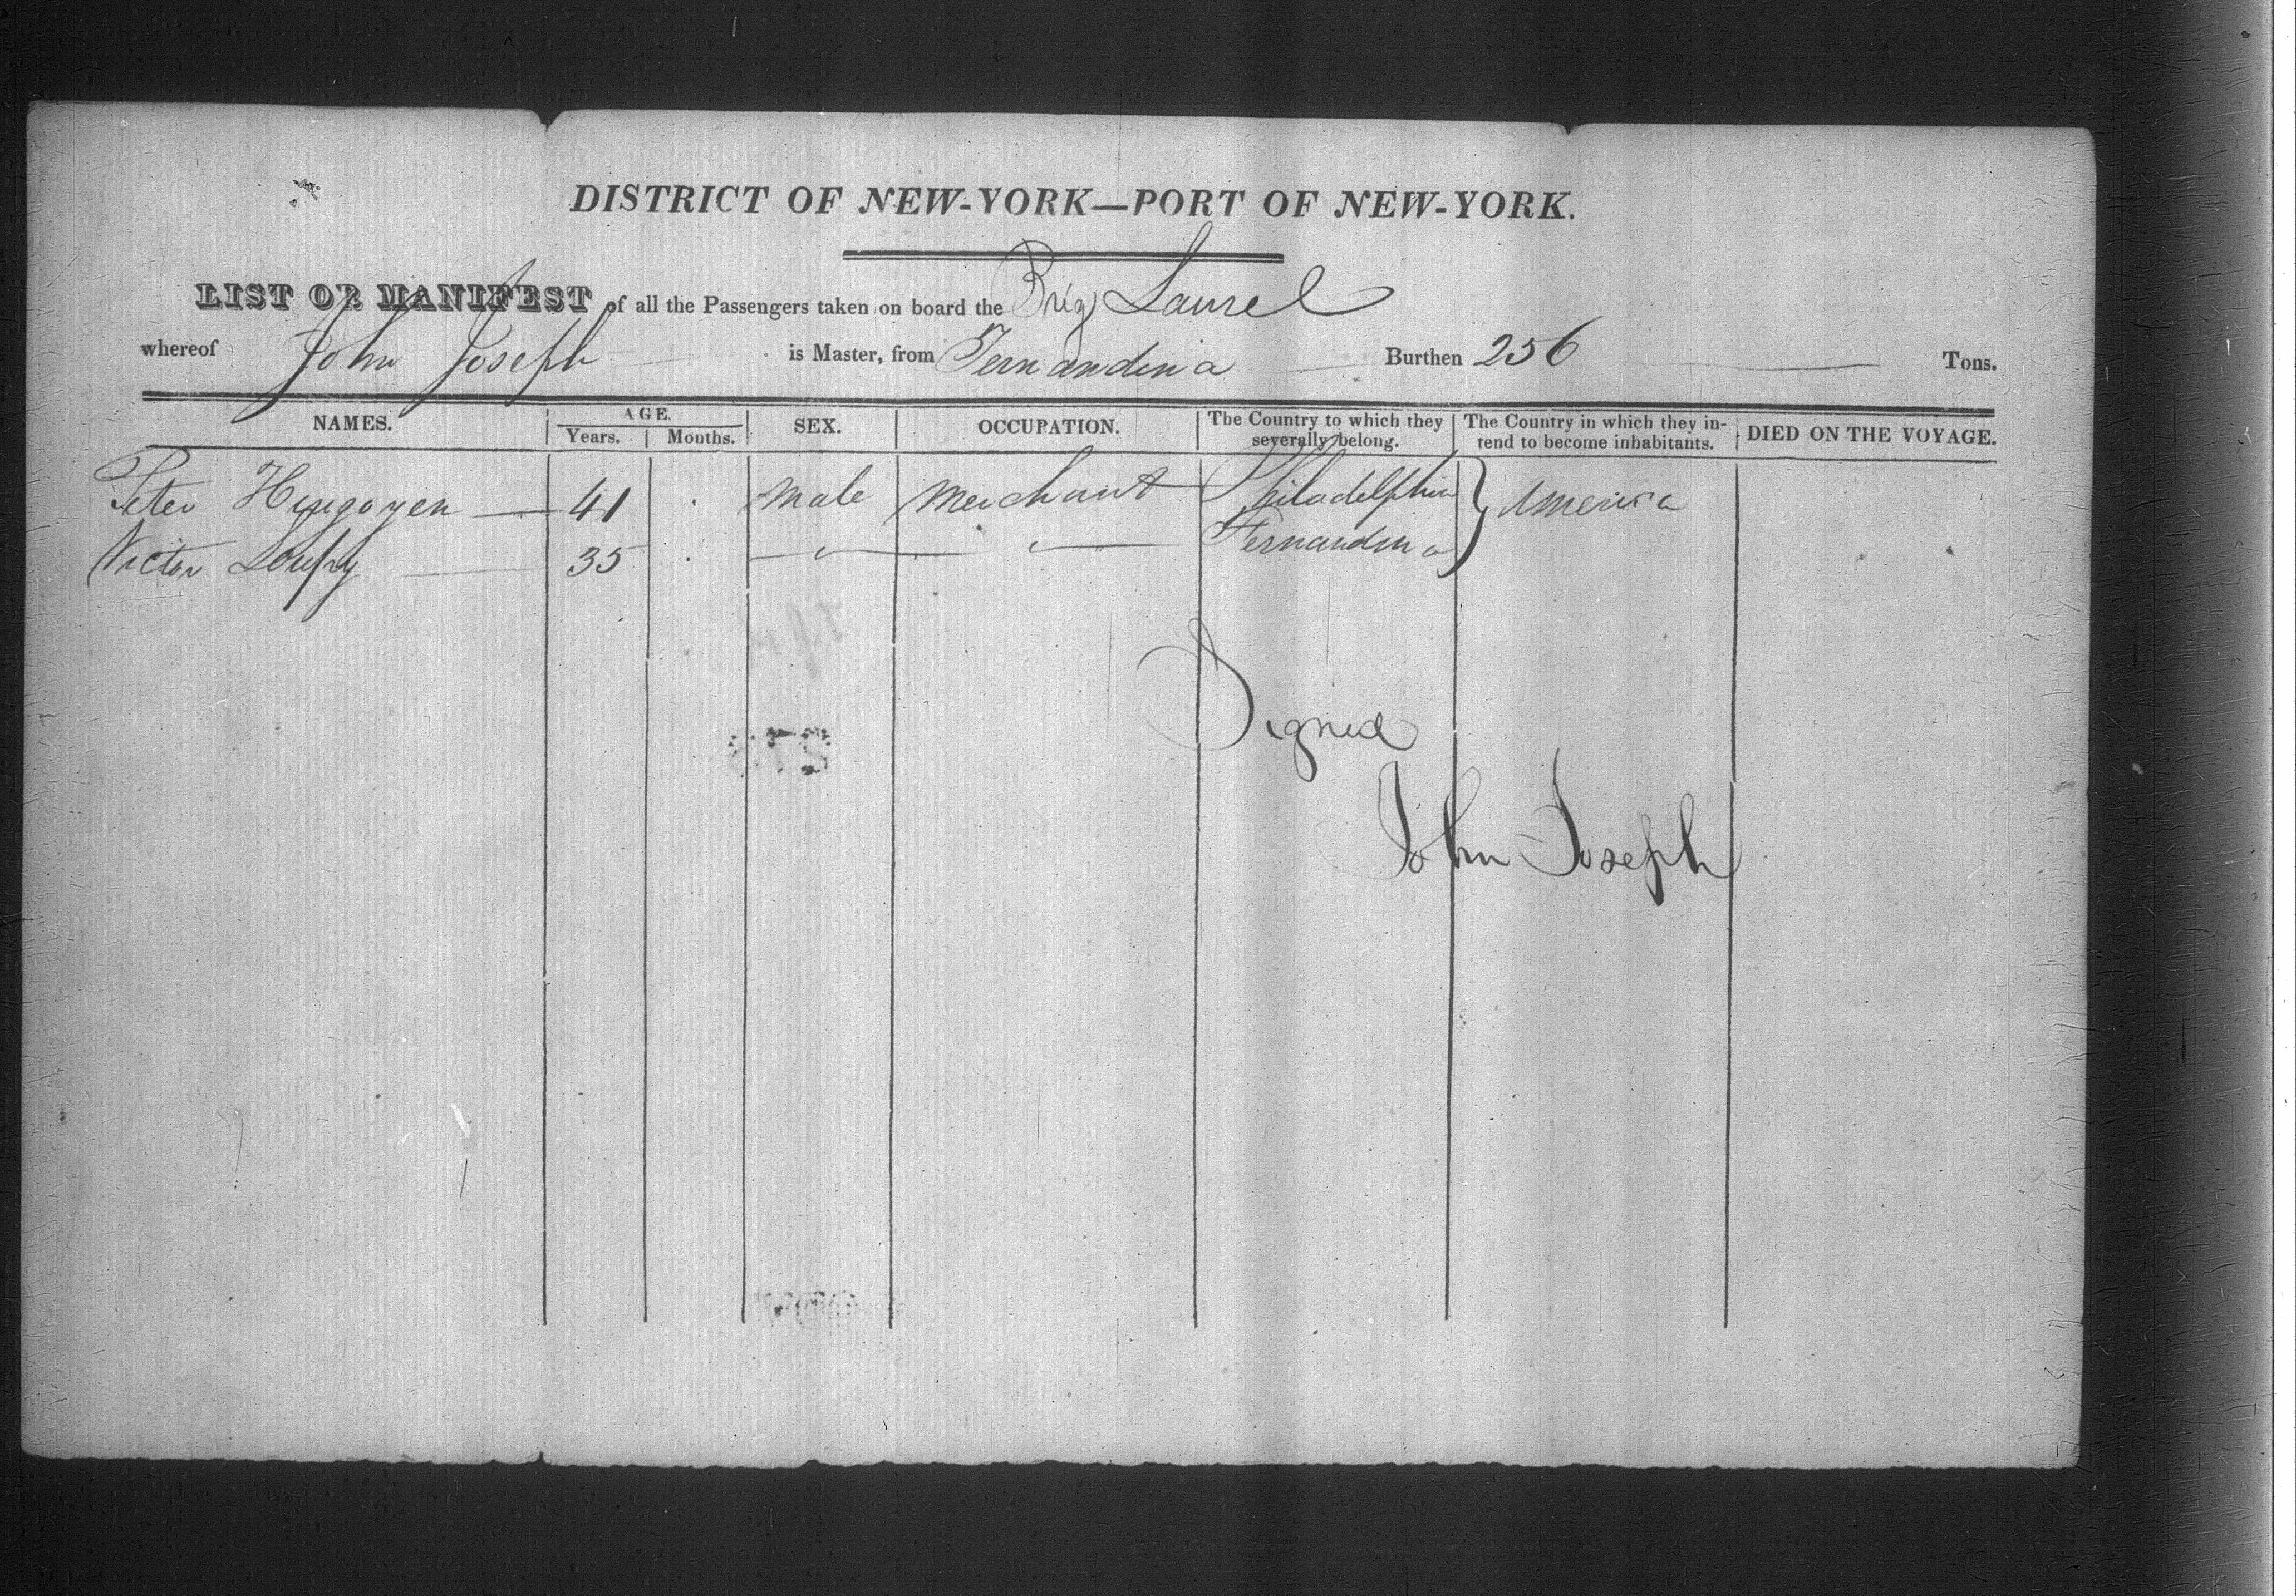 DISTRICT OF NEW-YORK—PORT OF NEW-YORK.
LIST OR MANIFEST of all the Passengers taken on board the Brig Laurel
whereof John Joseph is Master, from Fernandina Burthen 256 Tons.
NAMES. AGE. Years. Months. SEX. OCCUPATION. The Country to which they severally belong. The Country in which they intend to become inhabitants. DIED ON THE VOYAGE.
Peter 41 Male Merchant Philadelphia } America
Victor Loupy 35 " " Fernandina
Signed
John Joseph